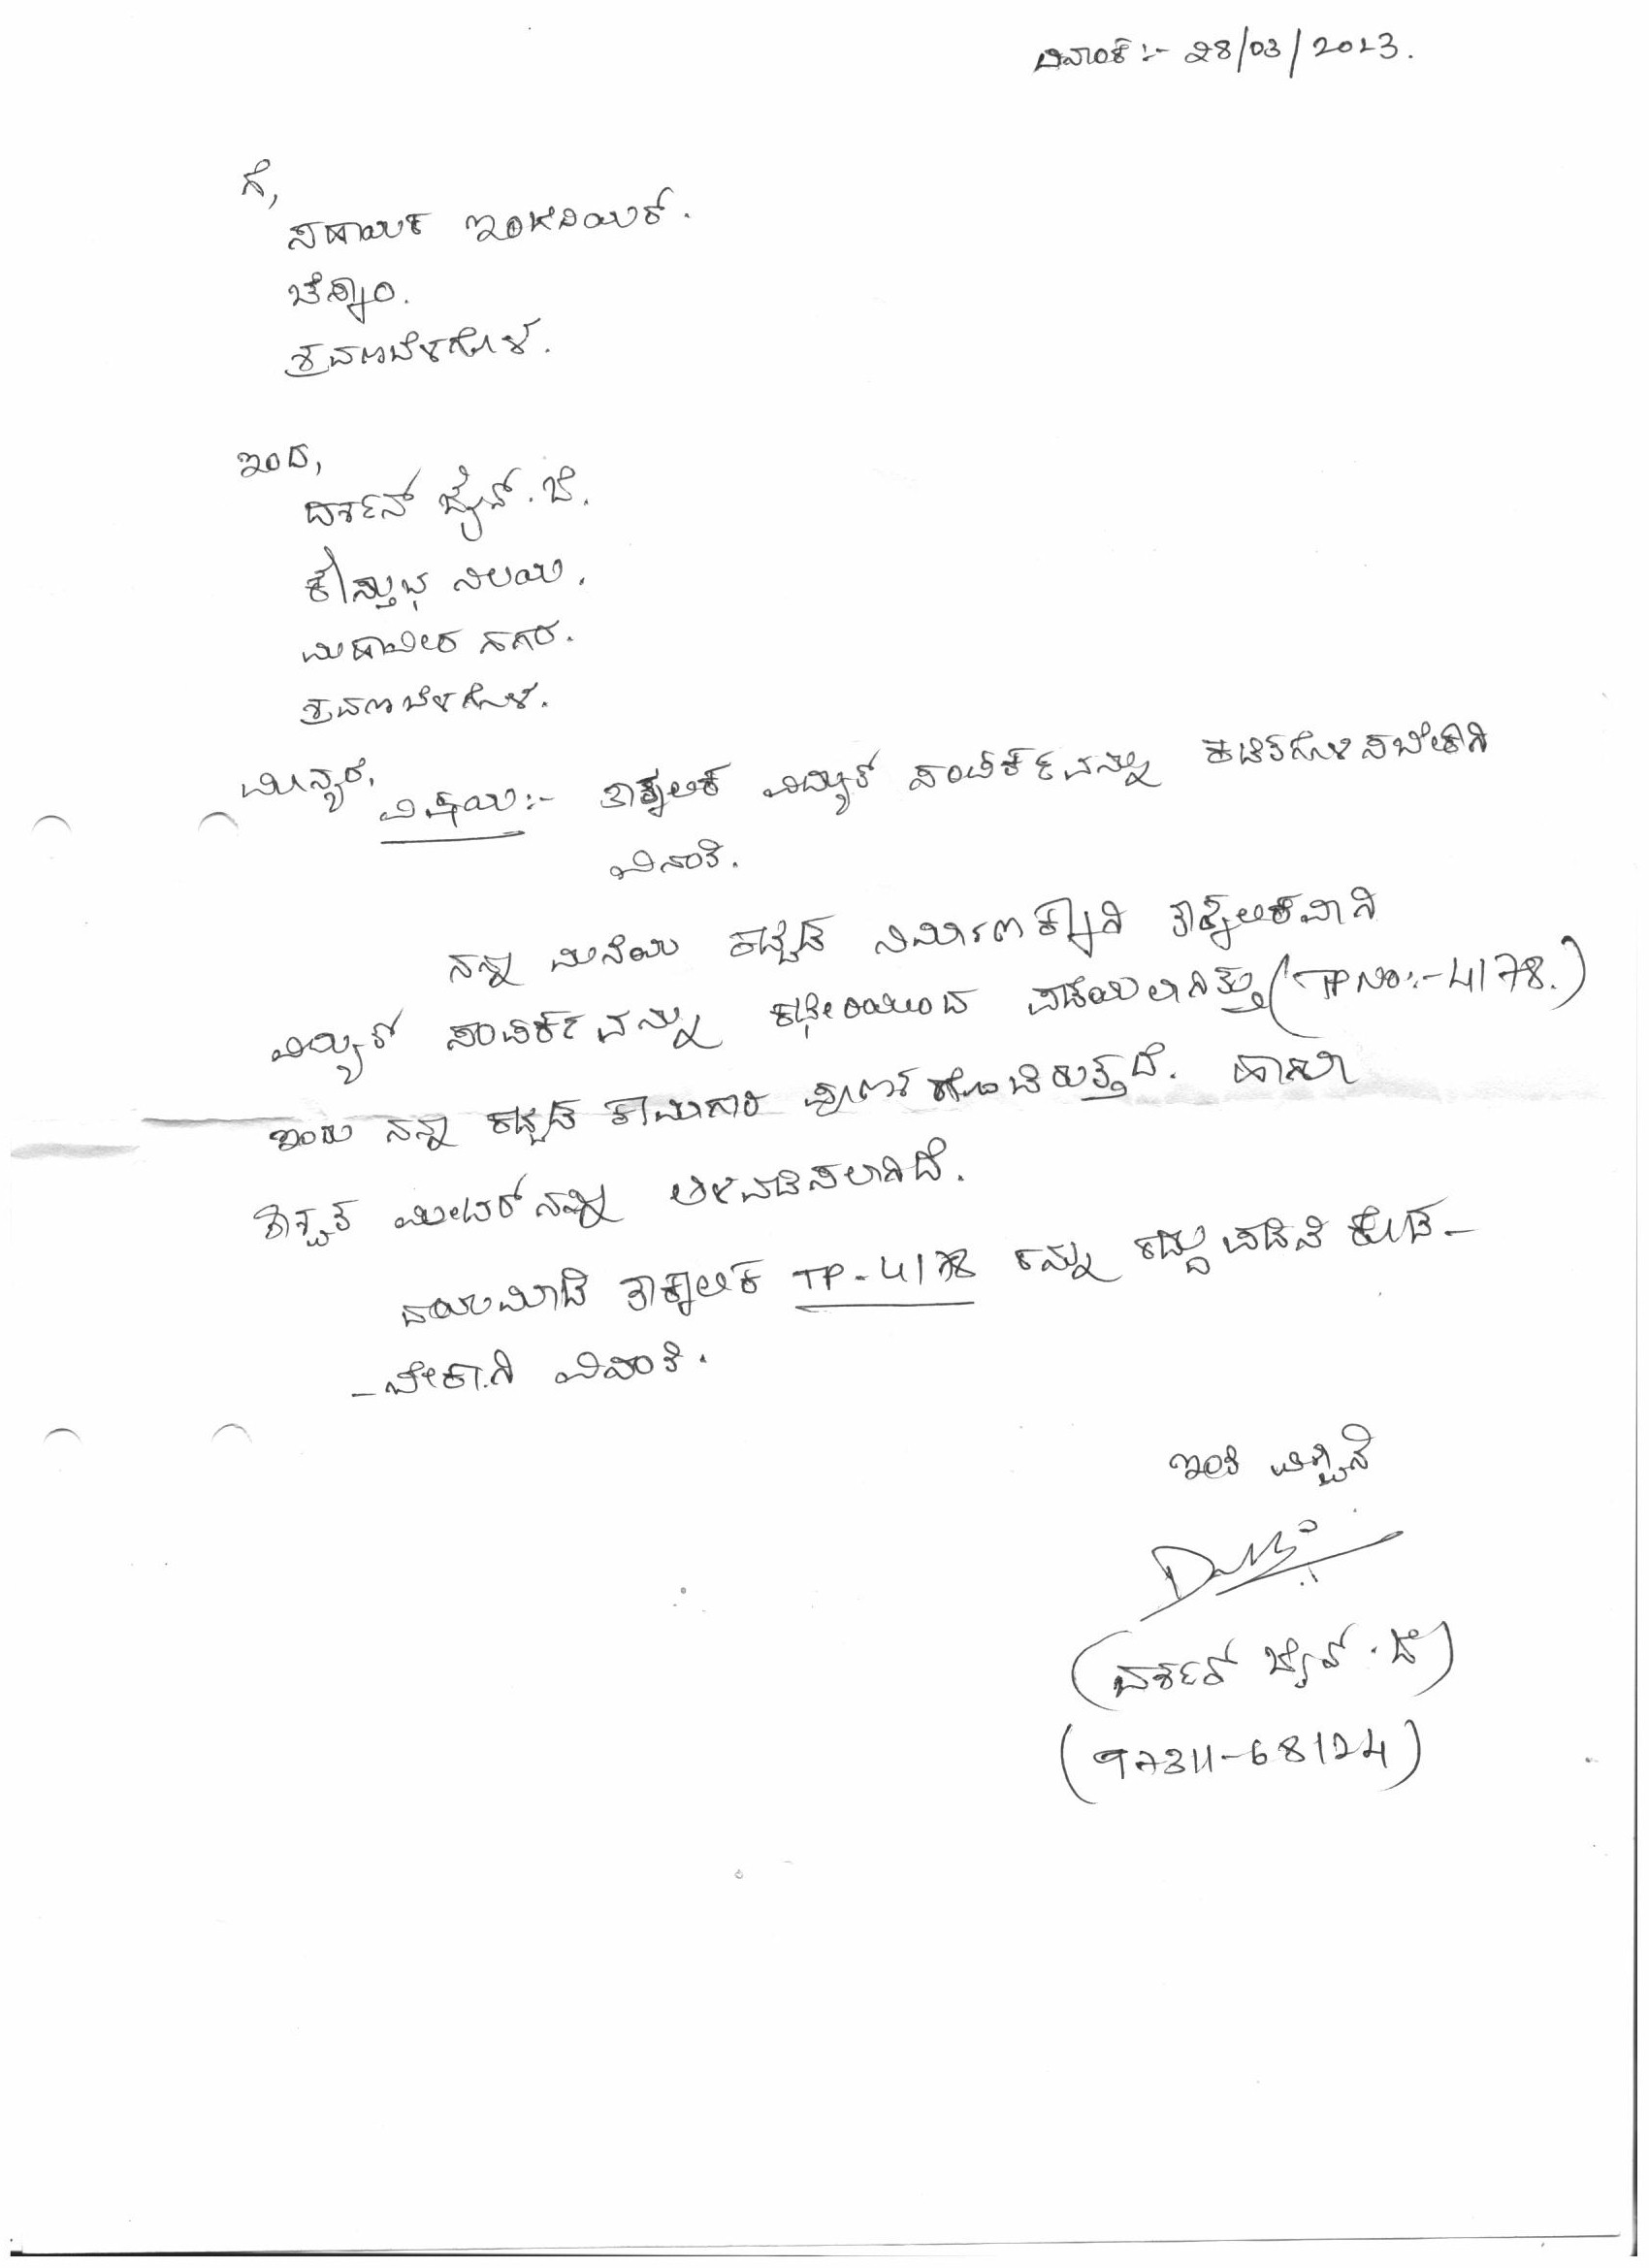 ದಿನಾಂಕ:- 28/03/2023.
ಗೆ,
ಸಹಾಯಕ ಇಂಜಿನಿಯರ್.
ಚೆಸ್ಕಾಂ.
ಶ್ರವಣಬೆಳಗೊಳ.
ಇಂದ,
ದರ್ಶನ್ ಜೈನ್. ಜೆ.
ಕೌಸ್ತುಭ ನಿಲಯ.
ಮಹಾವೀರ ನಗರ.
ಶ್ರವಣಬೆಳಗೊಳ.
ಮಾನ್ಯರೆ,
ವಿಷಯ:- ತಾತ್ಕಾಲಿಕ ವಿದ್ಯುತ್ ಸಂಪರ್ಕವನ್ನು ಕಡಿತಗೊಳಿಸಬೇಕಾಗಿ
ವಿನಂತಿ.
ನನ್ನ ಮನೆಯ ಕಟ್ಟಡ ನಿರ್ಮಾಣಕ್ಕಾಗಿ ತಾತ್ಕಾಲಿಕವಾಗಿ
ವಿದ್ಯುತ್ ಸಂಪರ್ಕವನ್ನು ಕಛೇರಿಯಿಂದ ಪಡೆಯಲಾಗಿತ್ತು (TP No:- 4178.)
ಇಂದು ನನ್ನ ಕಟ್ಟಡ ಕಾಮಗಾರಿ ಪೂರ್ಣಗೊಂಡಿರುತ್ತದೆ. ಹಾಗೂ
ಶಾಶ್ವತ ಮೀಟರ್‌ನನ್ನು ಅಳವಡಿಸಲಾಗಿದೆ.
ದಯಮಾಡಿ ತಾತ್ಕಾಲಿಕ TP-4178 ನನ್ನು ರದ್ದುಪಡಿಸಿ ಕೊಡ-
-ಬೇಕಾಗಿ ವಿನಂತಿ.
ಇಂತಿ
(ದರ್ಶನ್ ಜೈನ್. ಜೆ)
(97311-68124)